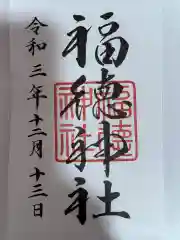 福徳神社
令和三年十二月十三日
福徳
神社